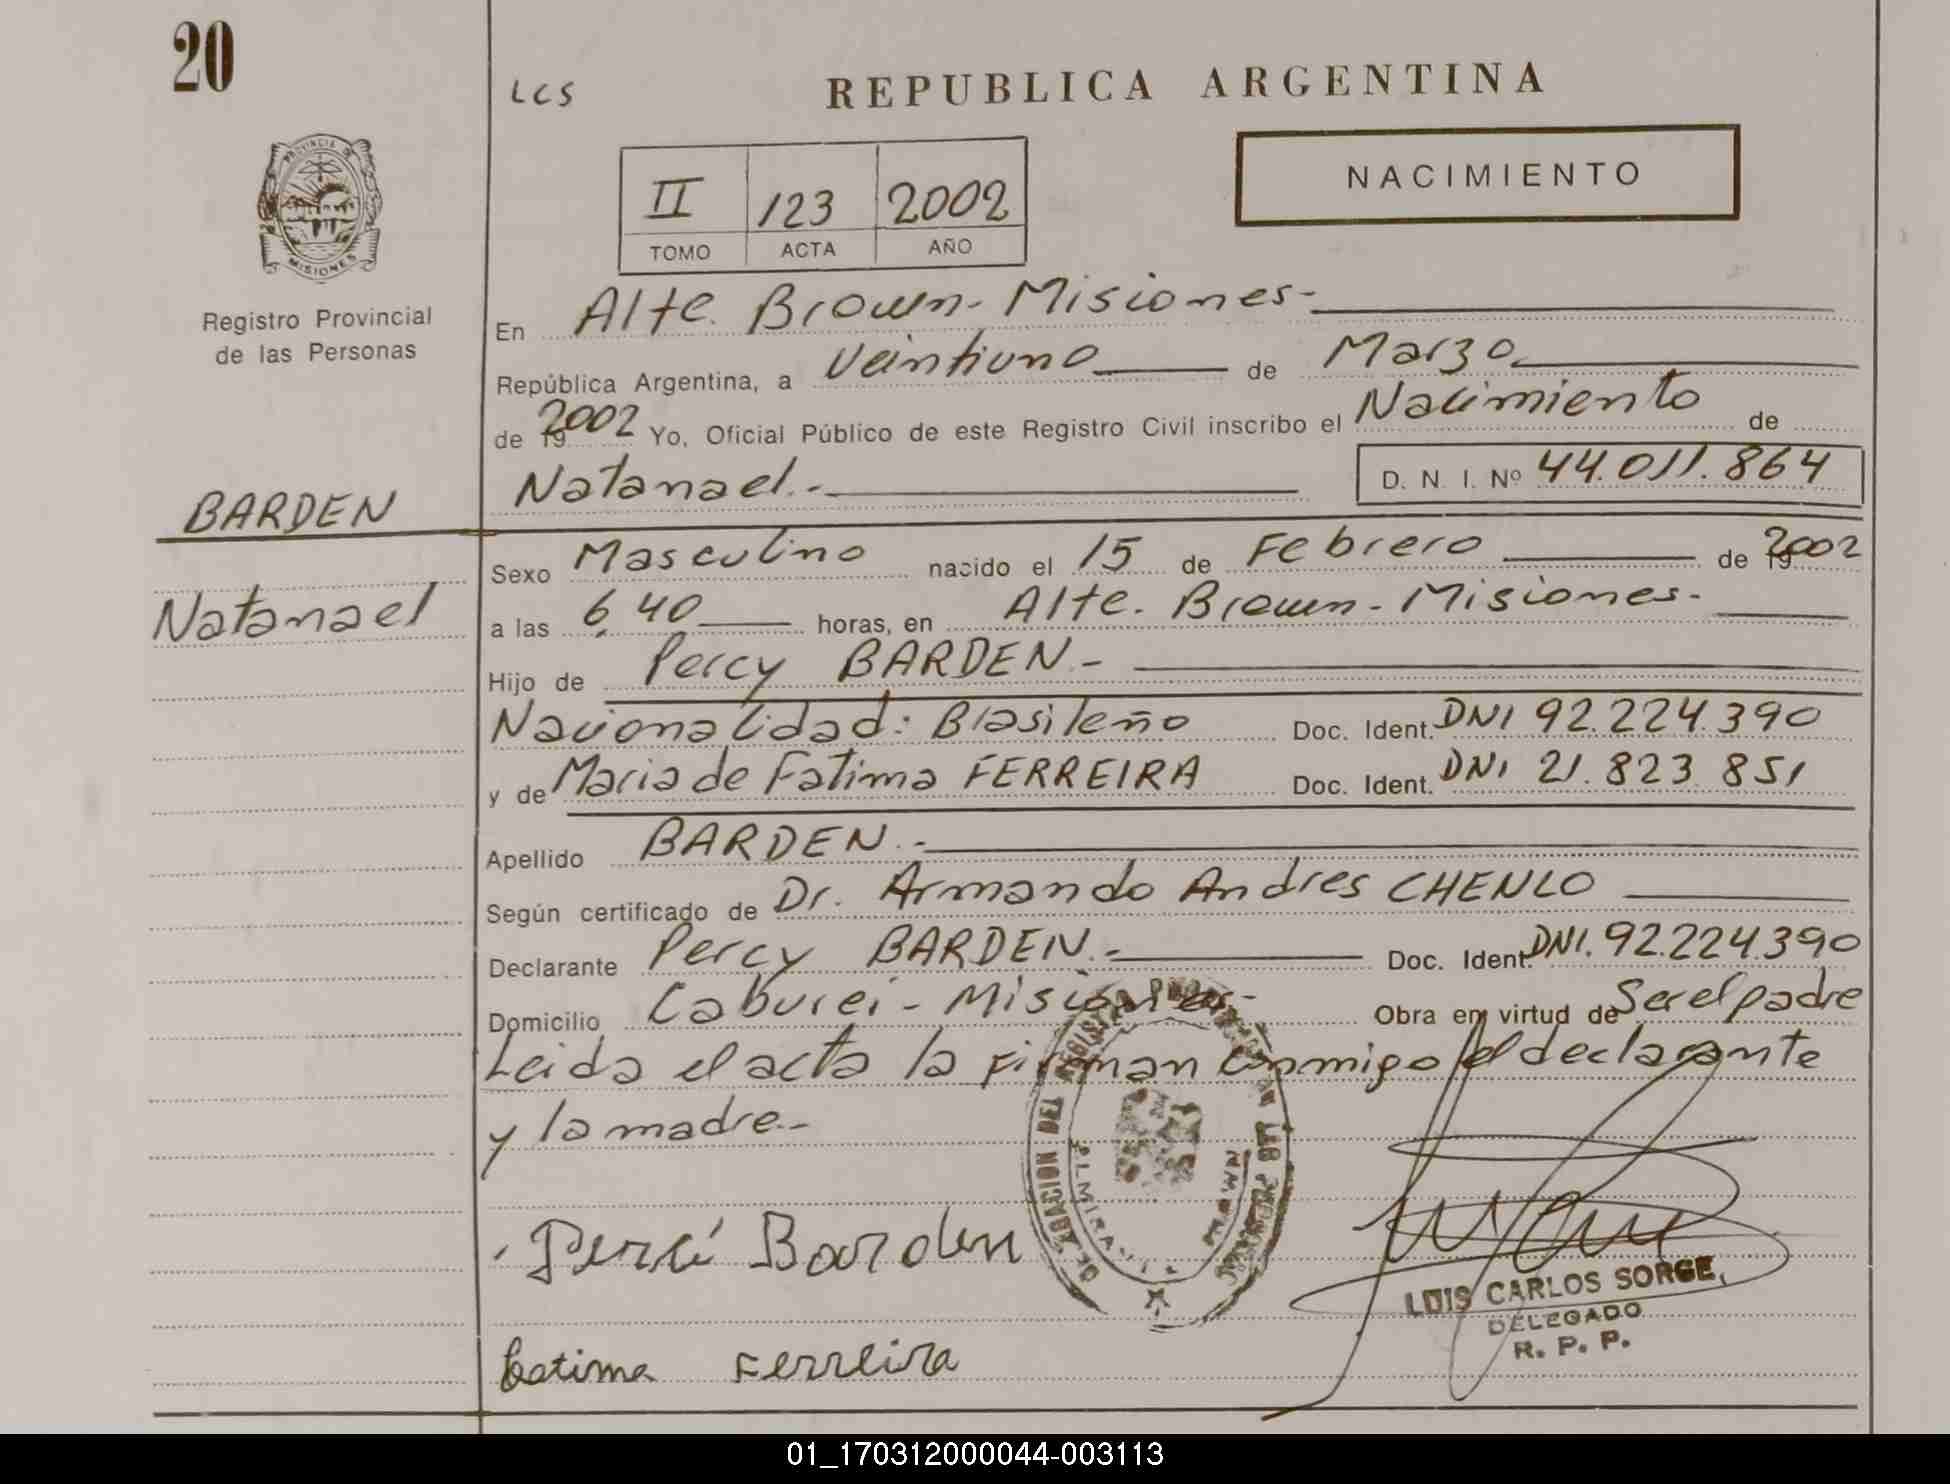 20
LCS
REPUBLICA ARGENTINA
PROVINCIA DE
MISIONES
Registro Provincial
de las Personas
II 123 2002
TOMO ACTA AÑO
NACIMIENTO
En Alte. Brown - Misiones -
República Argentina, a Veintiuno de Marzo
de 19 2002 Yo, Oficial Público de este Registro Civil inscribo el Nacimiento de
Natanael.- D. N. I. Nº 44.011.864
BARDEN
Natanael
Sexo Masculino nacido el 15 de Febrero de 19 2002
a las 6,40 horas, en Alte. Brown - Misiones -
Hijo de Percy BARDEN -
Nacionalidad: Brasileño Doc. Ident. DNI 92.224.390
y de Maria de Fatima FERREIRA Doc. Ident. DNI 21.823.851
Apellido BARDEN.-
Según certificado de Dr. Armando Andres CHENLO
Declarante Percy BARDEN.- Doc. Ident. DNI. 92.224.390
Domicilio Caburei - Misiones - Obra en virtud de Ser el padre
Leida el acta la firman conmigo el declarante
y la madre.-
Percí Barden
LUIS CARLOS SORGE
DELEGADO
R. P. P.
Fatima Ferreira
01_170312000044-003113